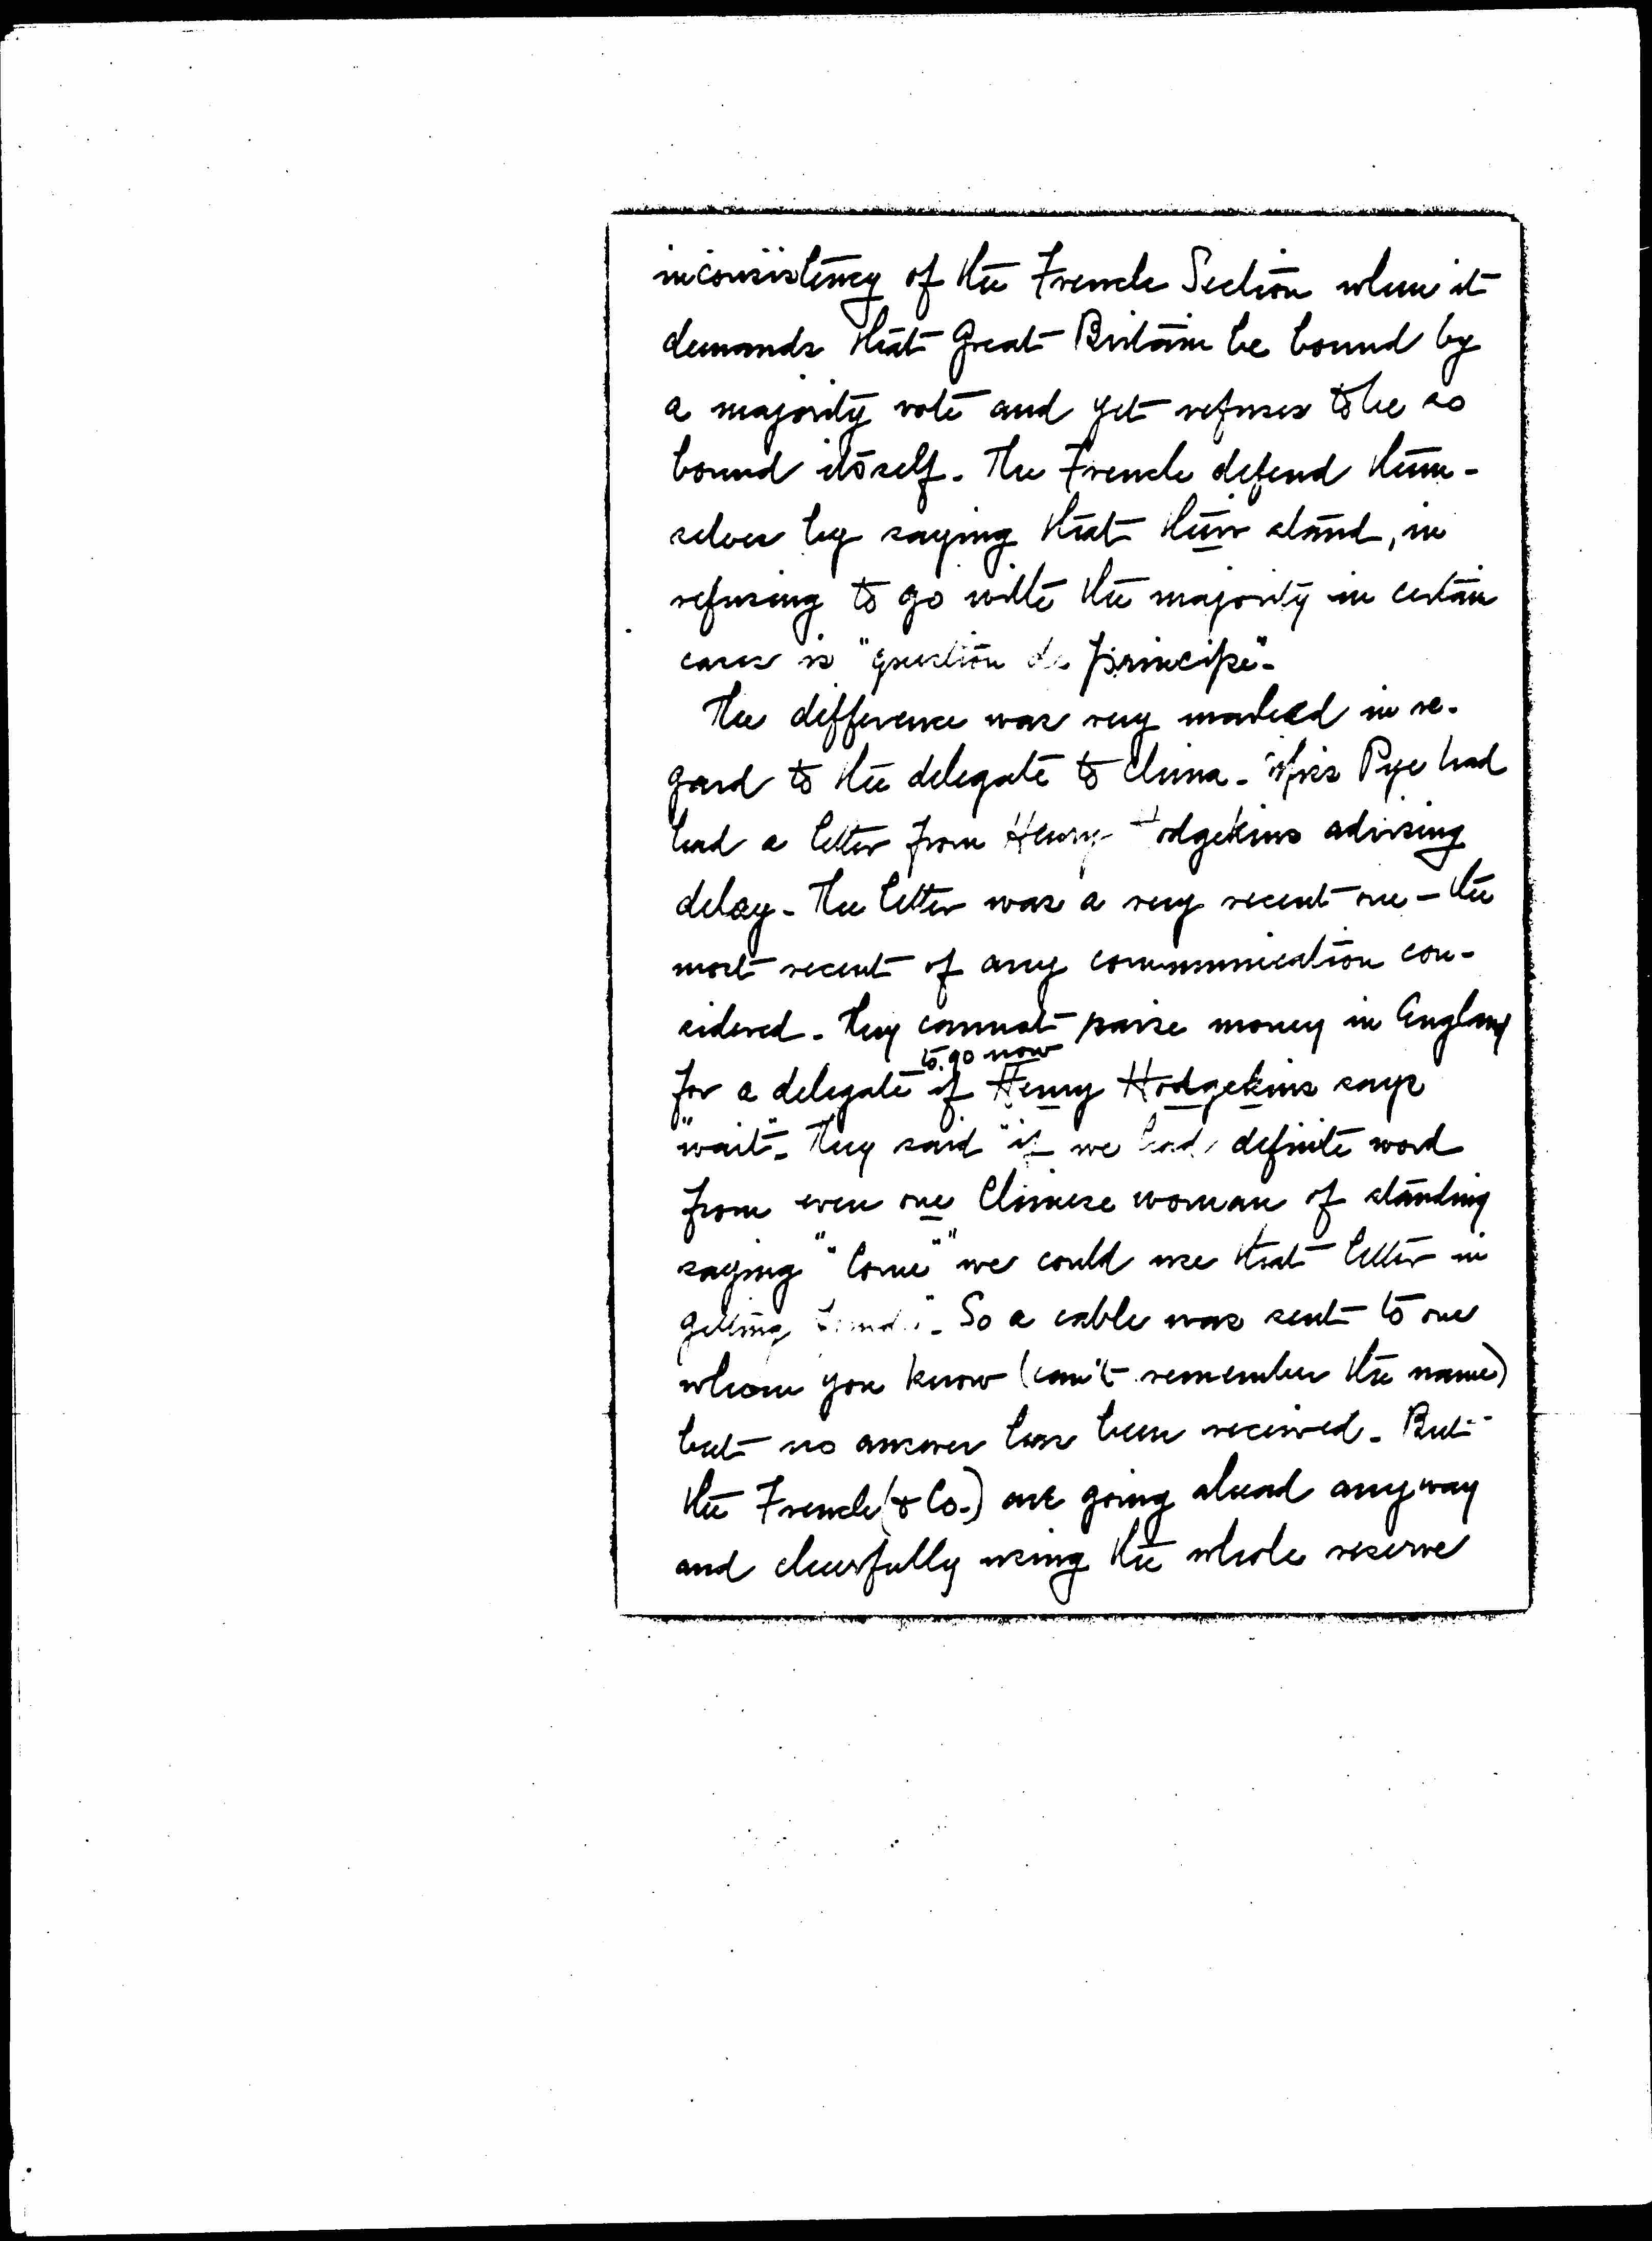 inconsistency of the French Section when it
demands that Great Britain be bound by
a majority vote and yet refuses to be so
bound itself. The French defend them-
selves by saying that their stand, in
refusing to go with the majority in certain
cases is "question de principe".
The difference was very marked in re-
gard to the delegate to China. Miss Pye had
had a letter from Henry Hodgekins advising
delay. The letter was a very recent one — the
most recent of any communication con-
sidered. They cannot raise money in England
to go now
for a delegate if Henry Hodgekins says
"wait". They said "if we had definite word
from even one Chinese woman of standing
saying "Come" we could use that letter in
getting funds". So a cable was sent to one
whom you know (can't remember the name)
but no answer has been received. But
the French (& Co.) are going ahead anyway
and cheerfully using the whole reserve